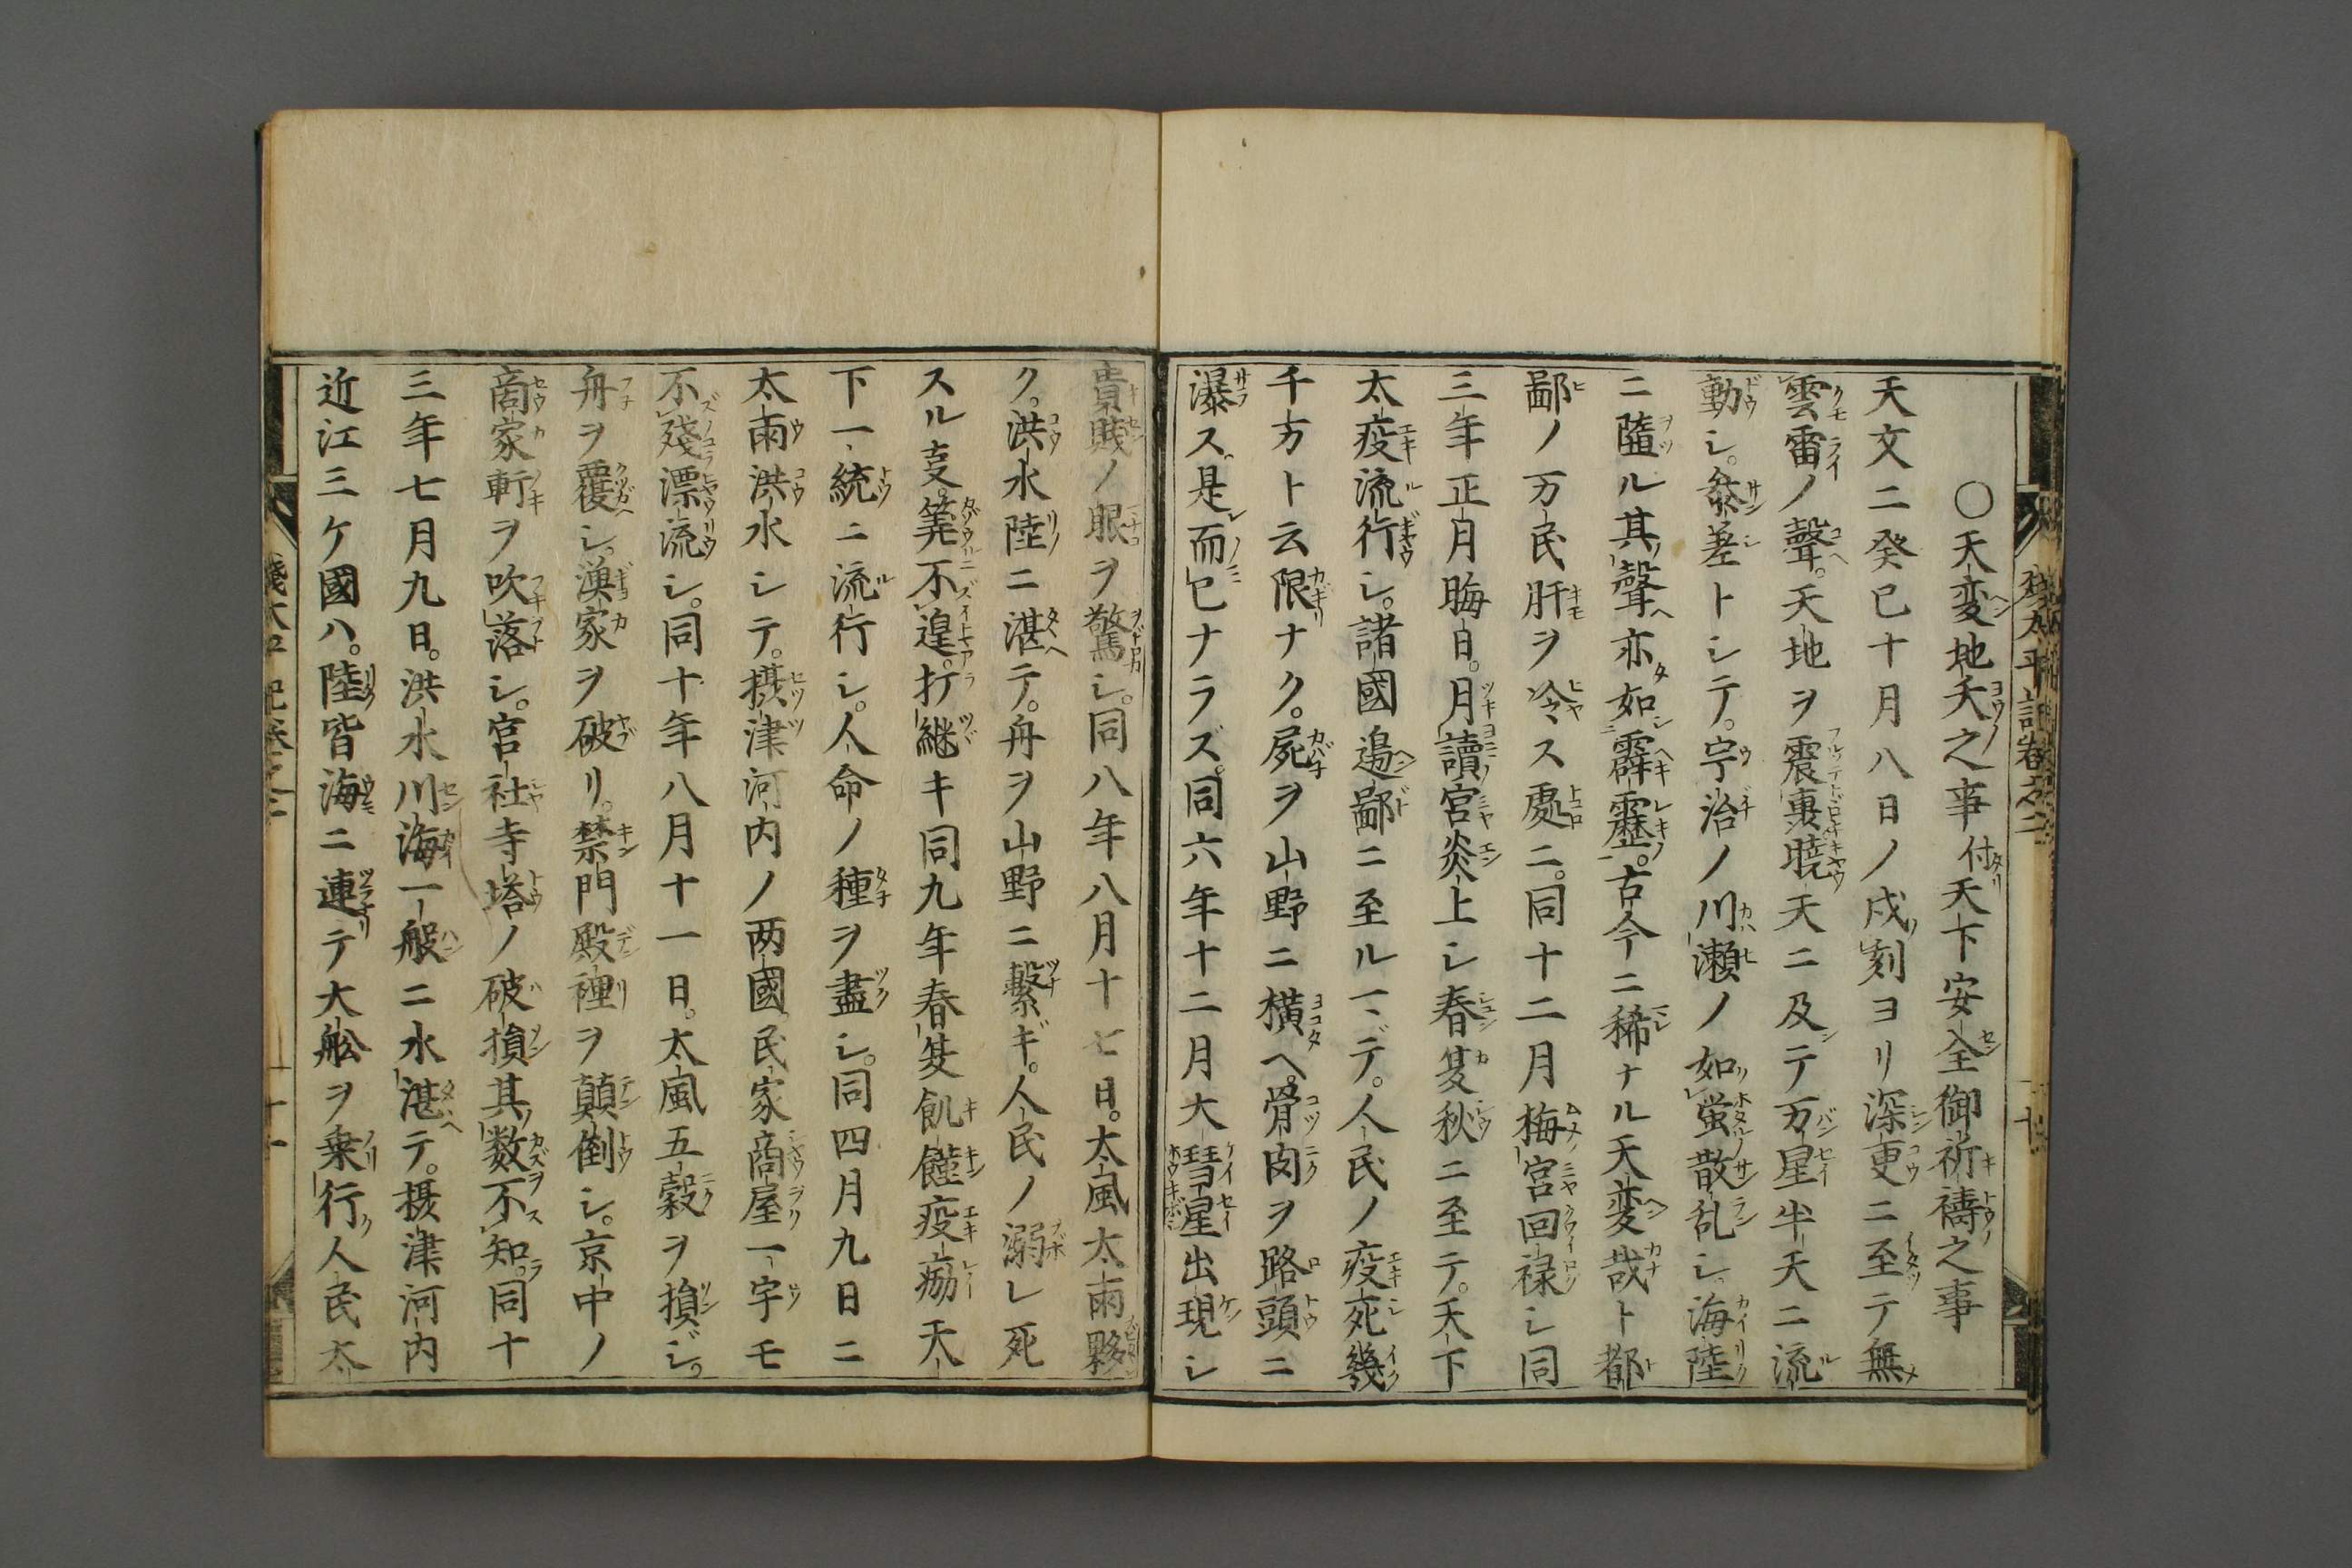 〇天変地夭之事付天下安全御祈禱之事
天文二癸巳十月八日ノ戌刻ヨリ深更ニ至テ無
雲雷ノ聲。天地ヲ震裏暁天ニ及テ万星半天ニ流
動シ。参差トシテ。宇治ノ川瀬ノ如蛍散乱シ。海陸
ニ墮ル其聲亦如霹靂。古今ニ稀ナル天変哉ト都
鄙ノ万民肝ヲ冷ス處ニ。同十二月梅宮回禄シ同
三年正月晦日。月讀宮炎上シ春夏秋ニ至テ。天下
太疫流行シ。諸國邉鄙ニ至ルマデ。人民ノ疫死幾
千万ト云限ナク。屍ヲ山野ニ横ヘ。骨肉ヲ路頭ニ
瀑ス。是而已ナラズ。同六年十二月大彗星出現シ
貴賤ノ眼ヲ驚シ。同八年八月十七日。太風太雨夥
ク。洪水陸ニ湛テ。舟ヲ山野ニ繫ギ。人民ノ溺レ死
スル事。筭不遑。打継キ同九年春夏飢饉疫癘天
下一統ニ流行シ。人命ノ種ヲ盡シ。同四月九日ニ
太雨洪水シテ。摂津河内ノ両國。民家商屋一宇モ
不殘漂流シ。同十年八月十一日。太風五穀ヲ損ジ。
舟ヲ覆シ。漁家ヲ破リ。禁門殿裡ヲ顛倒シ。京中ノ
商家軒ヲ吹落シ。宮社寺塔ノ破損其数不知。同十
三年七月九日。洪水川海一般ニ水湛テ。摂津河内
近江三ケ國ハ。陸皆海ニ連テ大舩ヲ乗行人民太